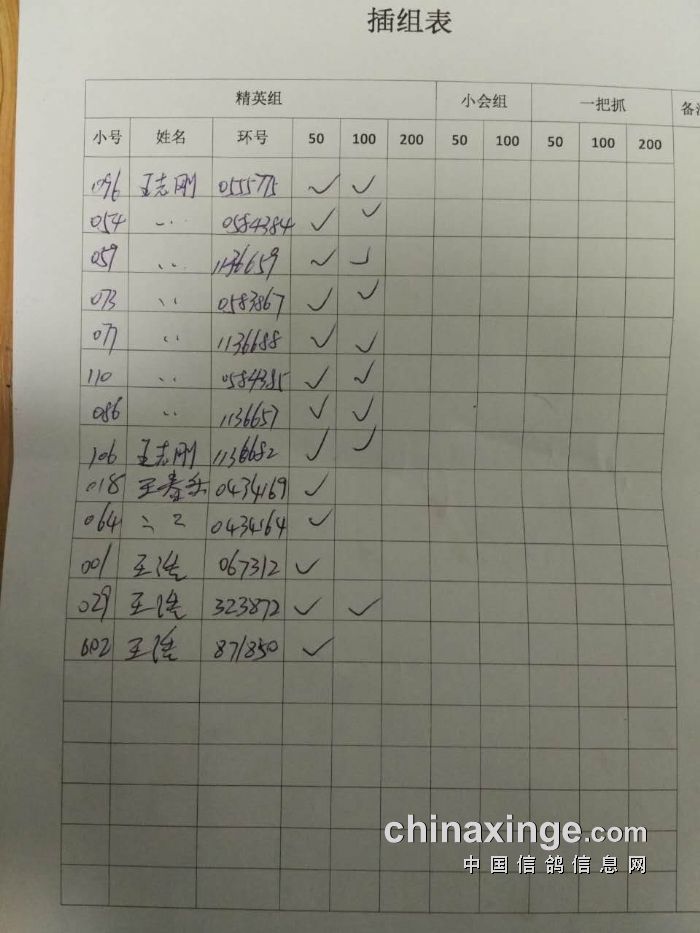 插组表
精英组 小会组 一把抓 备
小号 姓名 环号 50 100 200 50 100 50 100 200
096 王志刚 0555775 ✓ ✓
054 〃 0584384 ✓ ✓
059 〃 1136659 ✓ ✓
073 〃 0583867 ✓ ✓
077 〃 1136688 ✓ ✓
110 〃 0584385 ✓ ✓
086 〃 1136657 ✓ ✓
106 王志刚 1136682 ✓ ✓
018 王春 0434169 ✓
064 0434164 ✓
001 王 067312 ✓
029 王 323872 ✓ ✓
002 王 871850 ✓
chinaxinge.com
中国信鸽信息网